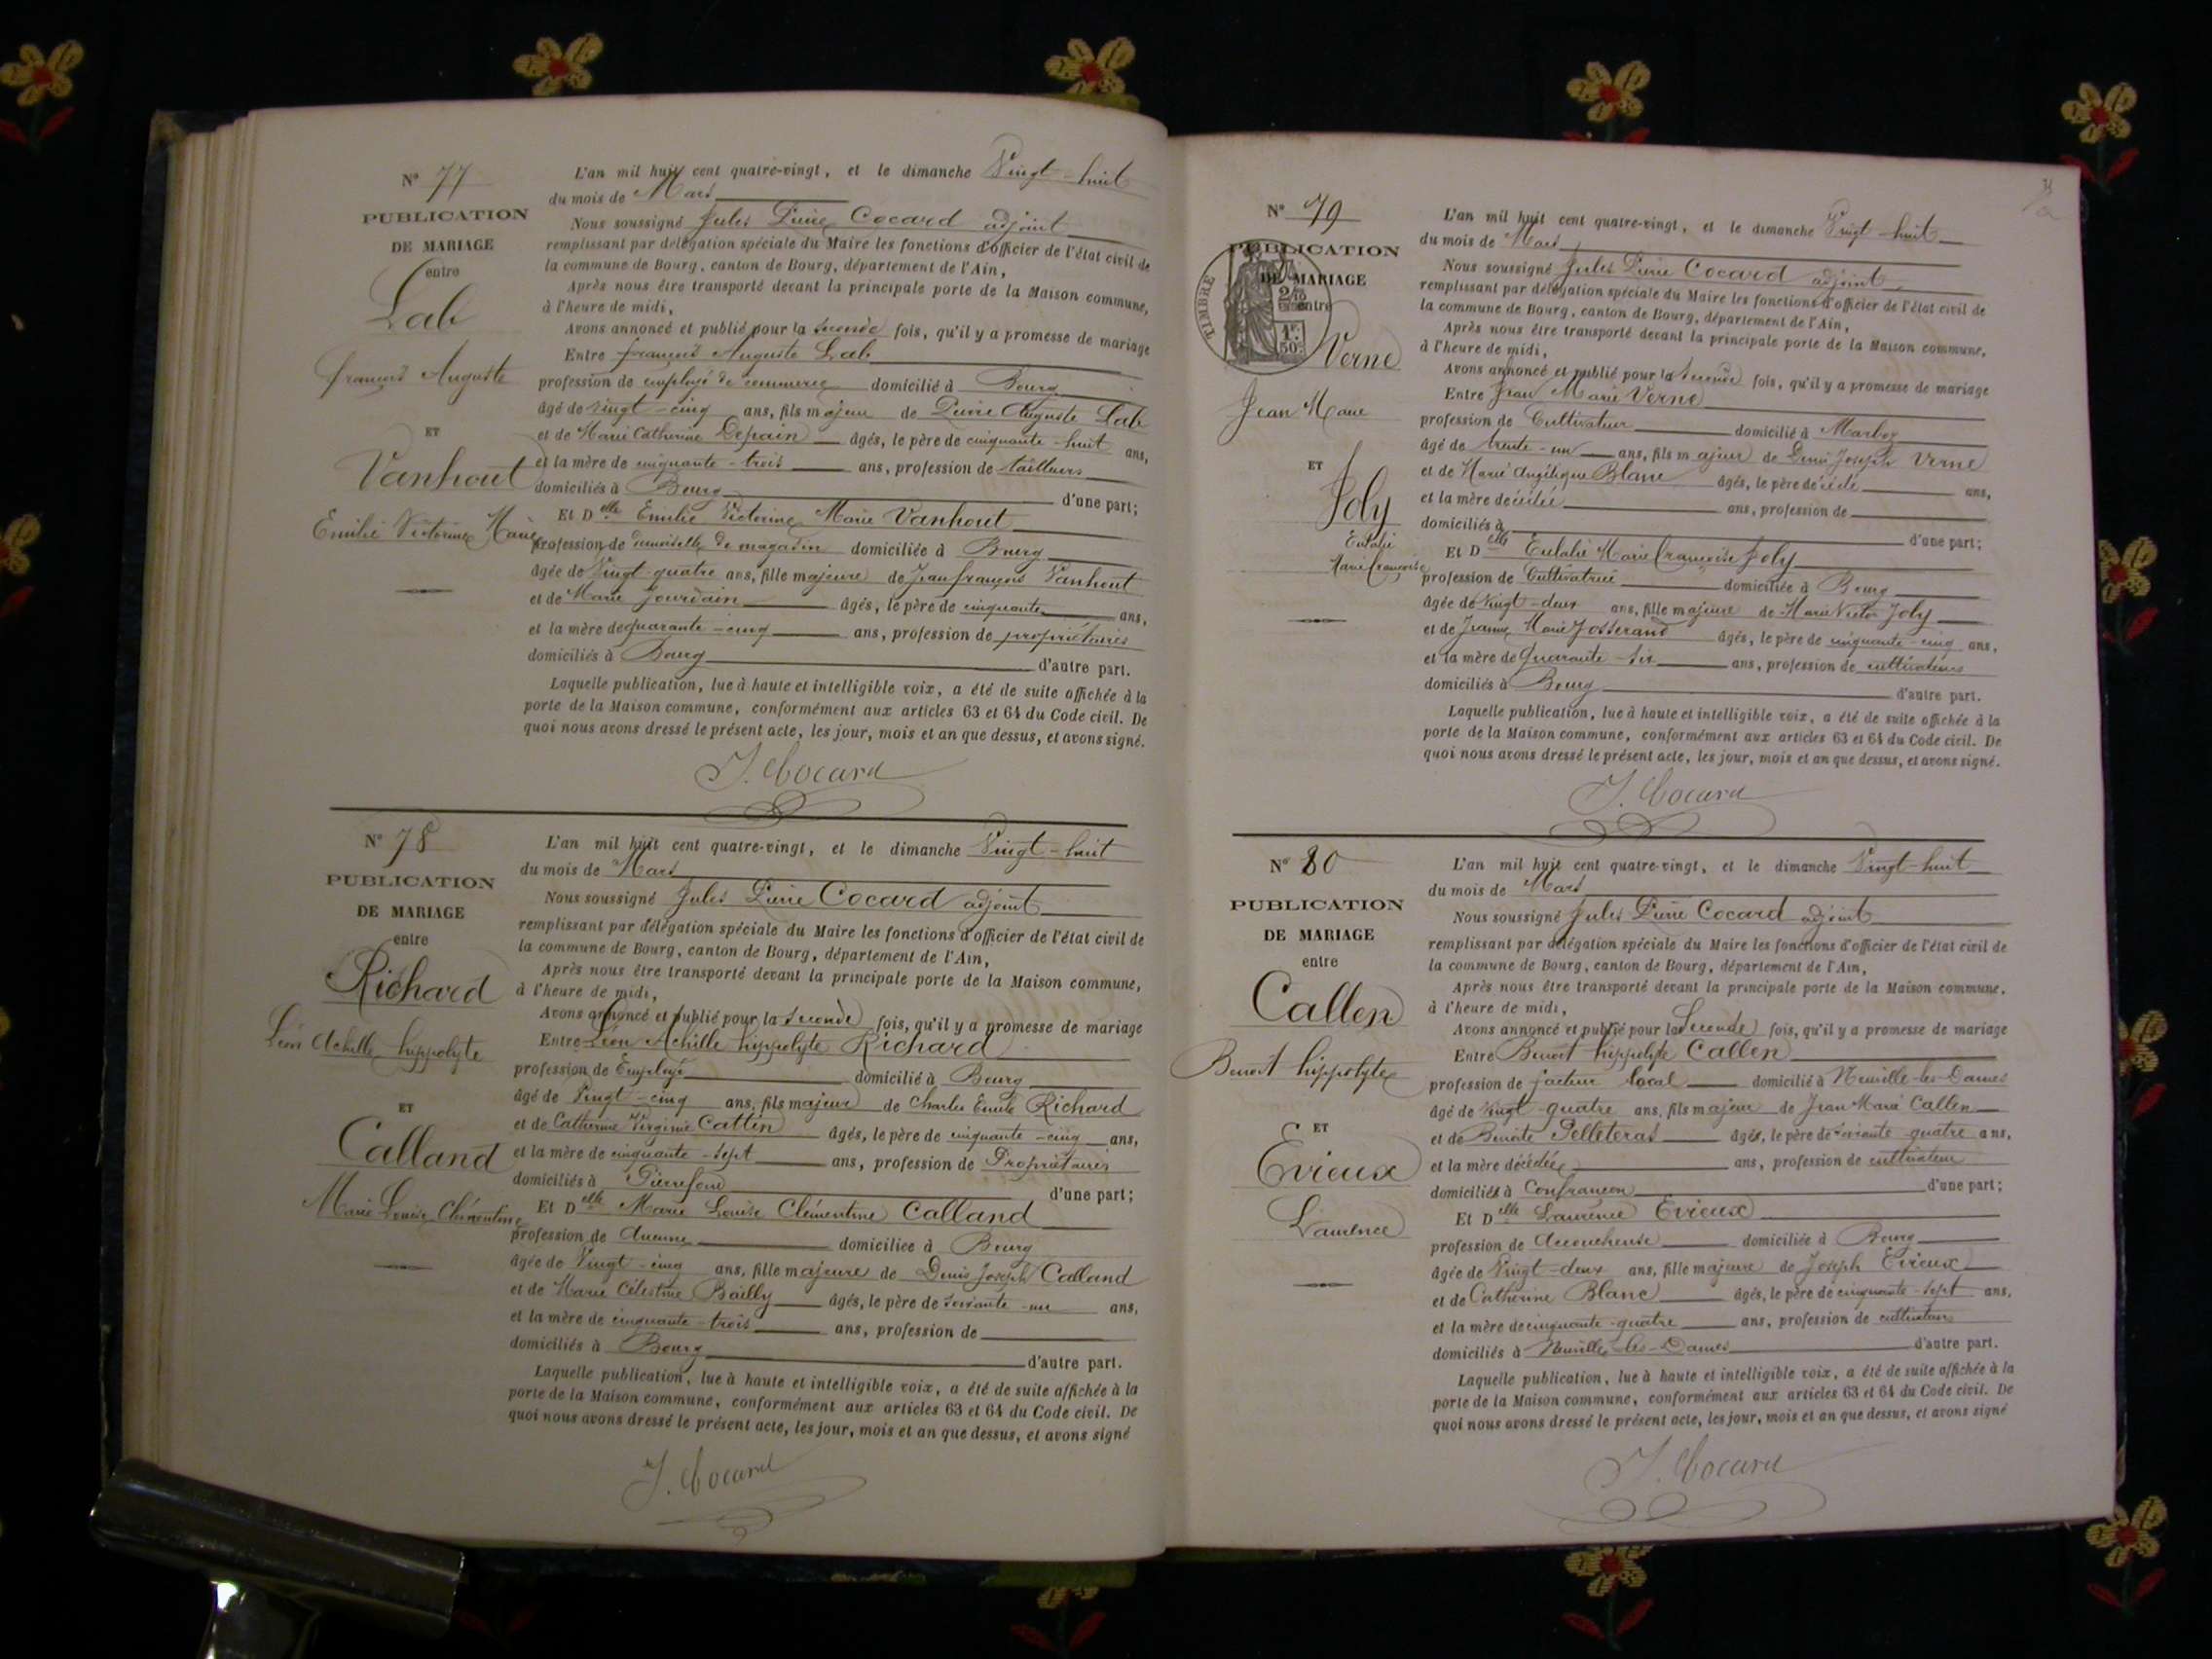 N° 77
PUBLICATION
DE MARIAGE
entre
Lab
françois Auguste
ET
Vanhout
Emilie Victorine Marie
L'an mil huit cent quatre-vingt, et le dimanche Vingt-huit
du mois de Mars
Nous soussigné Jules Pierre Cocard adjoint
remplissant par délégation spéciale du Maire les fonctions d'officier de l'état civil de
la commune de Bourg, canton de Bourg, département de l'Ain,
Après nous être transporté devant la principale porte de la Maison commune,
à l'heure de midi,
Avons annoncé et publié pour la seconde fois, qu'il y a promesse de mariage
Entre françois Auguste Lab
profession de employé de commerce domicilié à Bourg
âgé de vingt-cinq ans, fils majeur de Pierre Auguste Lab
et de Marie Catherine Depain âgés, le père de cinquante-huit ans,
et la mère de cinquante-trois ans, profession de tailleurs
domiciliés à Bourg d'une part;
Et Delle Emilie Victorine Marie Vanhout
profession de demoiselle de magasin domiciliée à Bourg
âgée de Vingt-quatre ans, fille majeure de Jean françois Vanhout
et de Marie Jourdain âgés, le père de cinquante ans,
et la mère de quarante-cinq ans, profession de propriétaires
domiciliés à Bourg d'autre part.
Laquelle publication, lue à haute et intelligible voix, a été de suite affichée à la
porte de la Maison commune, conformément aux articles 63 et 64 du Code civil. De
quoi nous avons dressé le présent acte, les jour, mois et an que dessus, et avons signé.
J. Cocard
N° 78
PUBLICATION
DE MARIAGE
entre
Richard
Léon Achille hippolyte
ET
Calland
Marie Louise Clémentine
L'an mil huit cent quatre-vingt, et le dimanche Vingt-huit
du mois de Mars
Nous soussigné Jules Pierre Cocard adjoint
remplissant par délégation spéciale du Maire les fonctions d'officier de l'état civil de
la commune de Bourg, canton de Bourg, département de l'Ain,
Après nous être transporté devant la principale porte de la Maison commune,
à l'heure de midi,
Avons annoncé et publié pour la seconde fois, qu'il y a promesse de mariage
Entre Léon Achille hippolyte Richard
profession de Employé domicilié à Bourg
âgé de Vingt-cinq ans, fils majeur de Charles Emile Richard
et de Catherine Virginie Cattin âgés, le père de cinquante-cinq ans,
et la mère de cinquante-sept ans, profession de Propriétaires
domiciliés à d'une part;
Et Delle Marie Louise Clémentine Calland
profession de Aucune domiciliée à Bourg
âgée de Vingt-cinq ans, fille majeure de Denis Joseph Calland
et de Marie Célestine Bailly âgés, le père de soixante-un ans,
et la mère de cinquante-trois ans, profession de
domiciliés à Bourg d'autre part.
Laquelle publication, lue à haute et intelligible voix, a été de suite affichée à la
porte de la Maison commune, conformément aux articles 63 et 64 du Code civil. De
quoi nous avons dressé le présent acte, les jour, mois et an que dessus, et avons signé
J. Cocard
N° 79
PUBLICATION
DE MARIAGE
entre
TIMBRE
2/10
1F.
50c.
Verne
Jean Marie
ET
Joly
Eulalie
Marie françoise
L'an mil huit cent quatre-vingt, et le dimanche Vingt-huit
du mois de Mars
Nous soussigné Jules Pierre Cocard adjoint
remplissant par délégation spéciale du Maire les fonctions d'officier de l'état civil de
la commune de Bourg, canton de Bourg, département de l'Ain,
Après nous être transporté devant la principale porte de la Maison commune,
à l'heure de midi,
Avons annoncé et publié pour la seconde fois, qu'il y a promesse de mariage
Entre Jean Marie Verne
profession de Cultivateur domicilié à Marboz
âgé de trente-un ans, fils majeur de Denis Joseph Verne
et de Marie Angélique Blanc âgés, le père décédé ans,
et la mère décédée ans, profession de
domiciliés à d'une part;
Et Delle Eulalie Marie françoise Joly
profession de Cultivatrice domiciliée à Bourg
âgée de Vingt-deux ans, fille majeure de Marie Victor Joly
et de Jeanne Marie Josserand âgés, le père de cinquante-cinq ans,
et la mère de Quarante-six ans, profession de cultivateurs
domiciliés à Bourg d'autre part.
Laquelle publication, lue à haute et intelligible voix, a été de suite affichée à la
porte de la Maison commune, conformément aux articles 63 et 64 du Code civil. De
quoi nous avons dressé le présent acte, les jour, mois et an que dessus, et avons signé.
J. Cocard
N° 80
PUBLICATION
DE MARIAGE
entre
Callen
Benoit hippolyte
ET
Evieux
Laurence
L'an mil huit cent quatre-vingt, et le dimanche Vingt-huit
du mois de Mars
Nous soussigné Jules Pierre Cocard adjoint
remplissant par délégation spéciale du Maire les fonctions d'officier de l'état civil de
la commune de Bourg, canton de Bourg, département de l'Ain,
Après nous être transporté devant la principale porte de la Maison commune,
à l'heure de midi,
Avons annoncé et publié pour la Seconde fois, qu'il y a promesse de mariage
Entre Benoit hippolyte Callen
profession de facteur local domicilié à Neuville-les-Dames
âgé de Vingt-quatre ans, fils majeur de Jean Marie Callen
et de Benoite Pelleteras âgés, le père de soixante-quatre ans,
et la mère décédée ans, profession de cultivateur
domiciliés à Confrançon d'une part;
Et Delle Laurence Evieux
profession de Accoucheuse domiciliée à Bourg
âgée de Vingt-deux ans, fille majeure de Joseph Evieux
et de Catherine Blanc âgés, le père de cinquante-sept ans,
et la mère de cinquante-quatre ans, profession de cultivateurs
domiciliés à Neuville-les-Dames d'autre part.
Laquelle publication, lue à haute et intelligible voix, a été de suite affichée à la
porte de la Maison commune, conformément aux articles 63 et 64 du Code civil. De
quoi nous avons dressé le présent acte, les jour, mois et an que dessus, et avons signé
J. Cocard